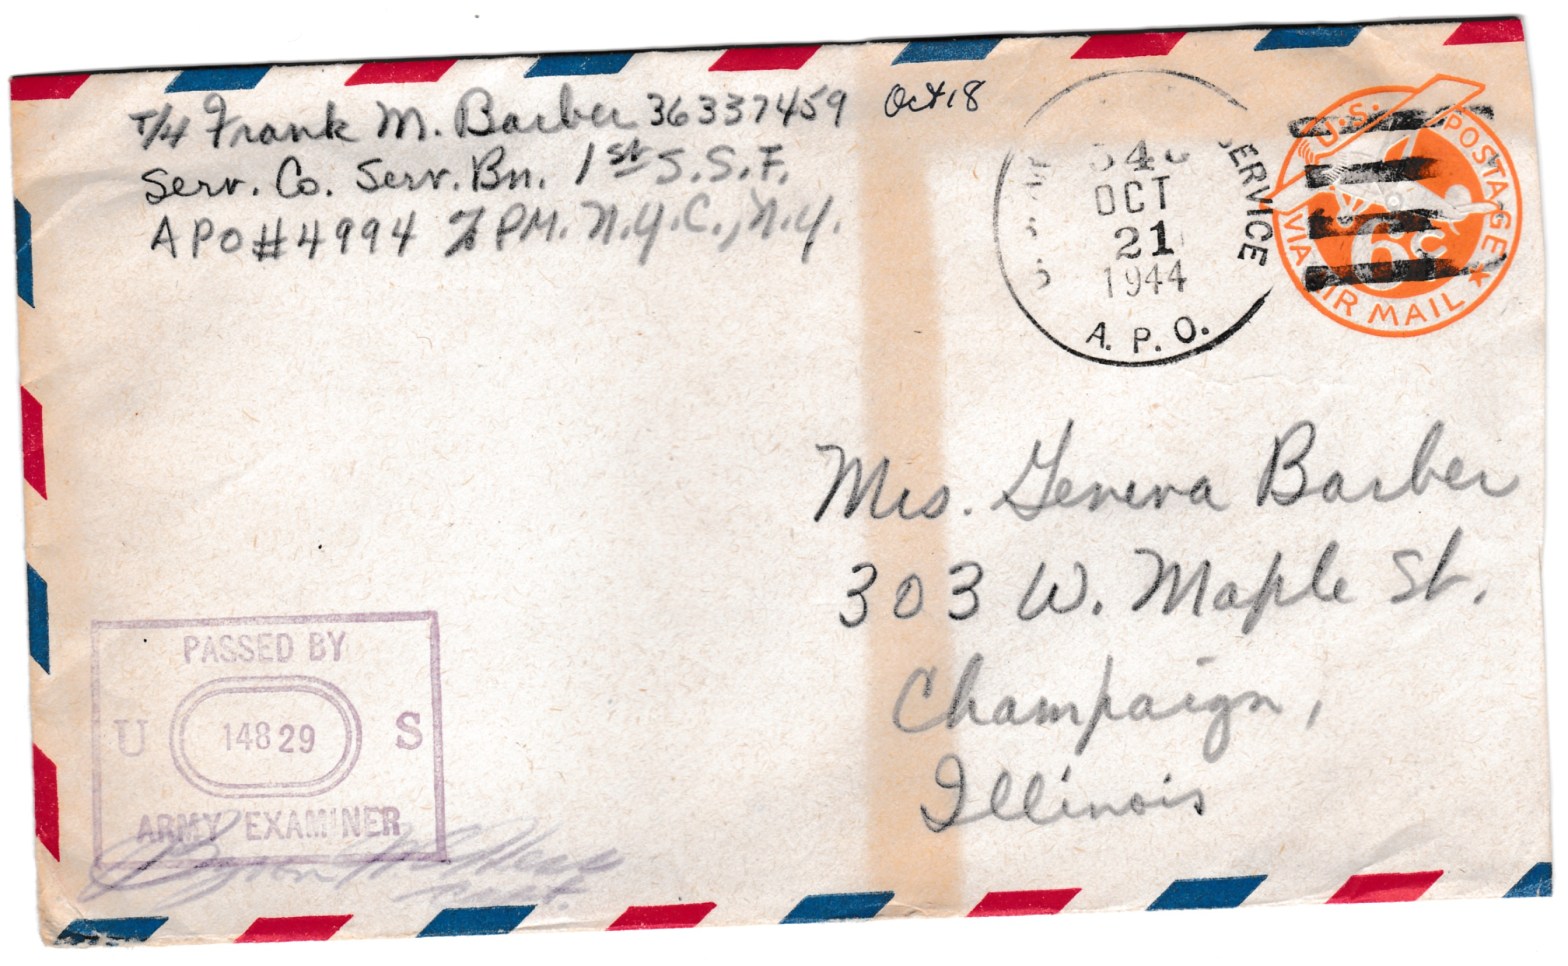 T/4 Frank M. Barber 36337459
Serv. Co. Serv. Bn. 1st S.S.F.
APO #4994 % PM. N.Y.C., N.Y.
Oct 18
SERVICE
OCT
21
1944
A. P. O.
U.S. POSTAGE
6¢
VIA AIR MAIL
Mrs. Geneva Barber
303 W. Maple St.
Champaign,
Illinois
PASSED BY
U 14829 S
ARMY EXAMINER